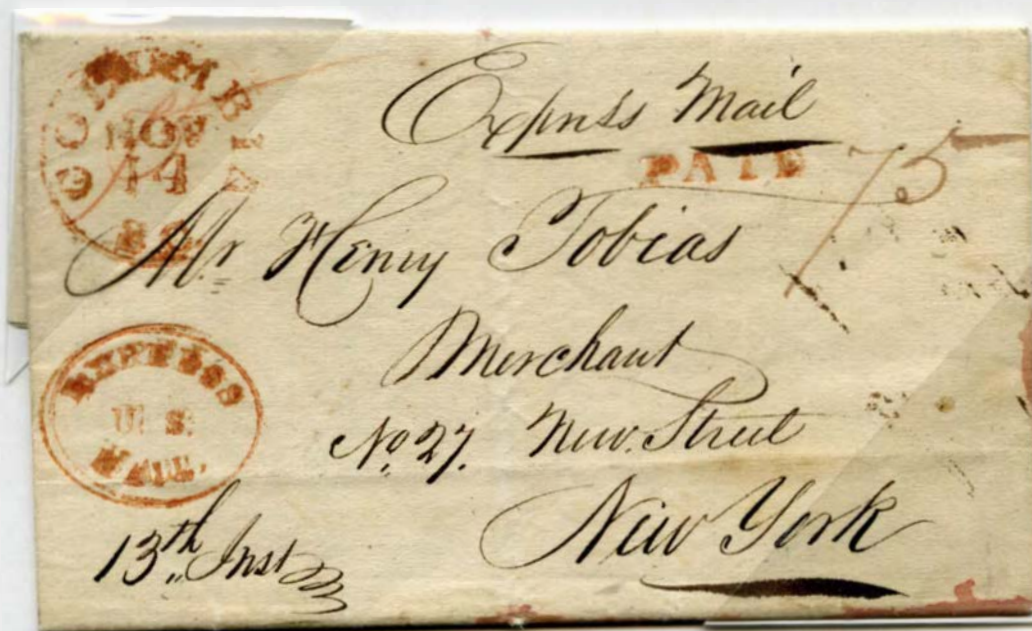 COLUMBIA
NOV
14
S.C.
Express Mail
PAID 75
Mr Henry Tobias
Merchant
No 27. New. Street
New York
EXPRESS
U. S.
MAIL.
13th Inst